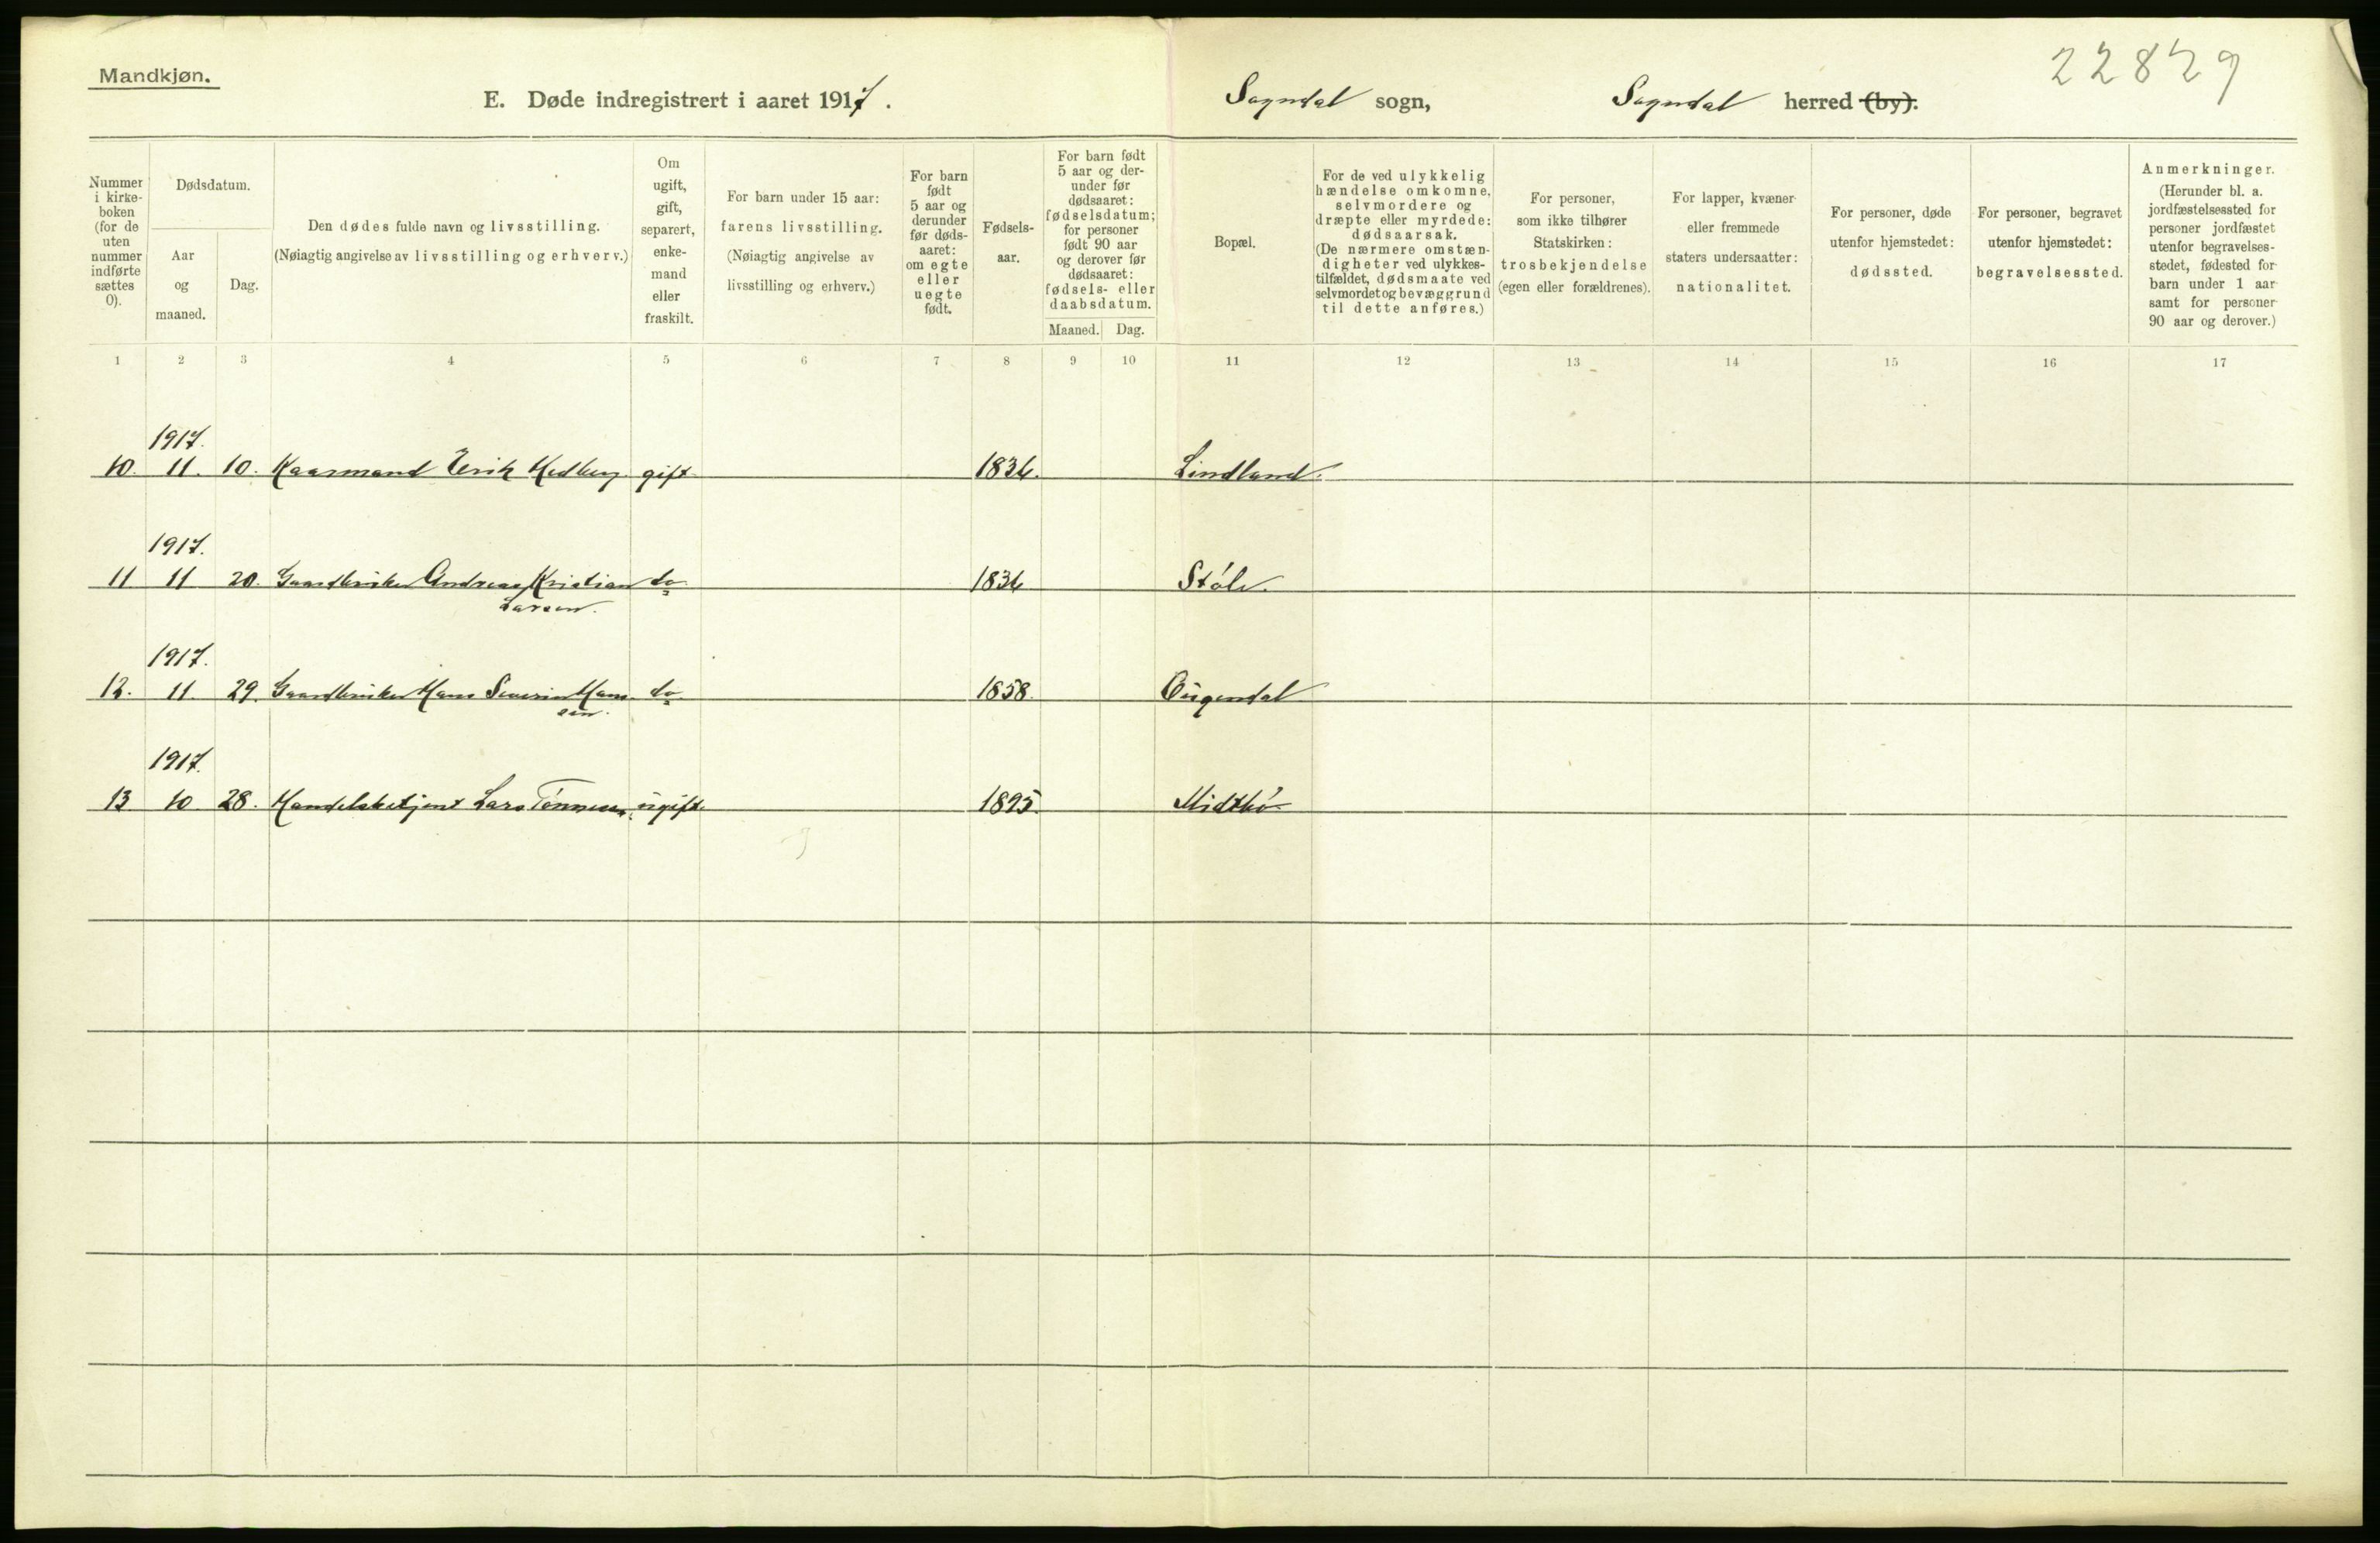 Mandkjøn.
22829
E. Døde indregistrert i aaret 1917. Sogndal sogn, Sogndal herred (by).
Nummer i kirke-boken (for de uten nummer indførte sættes 0).
Dødsdatum.
Aar og maaned.
Dag.
Den dødes fulde navn og livsstilling.
(Nøiagtig angivelse av livsstilling og erhverv.)
Om ugift, gift, separert, enke-mand eller fraskilt.
For barn under 15 aar:
farens livsstilling.
(Nøiagtig angivelse av livsstilling og erhverv.)
For barn født 5 aar og derunder før døds-aaret: om egte eller uegte født.
Fødsels-aar.
For barn født 5 aar og der-under før dødsaaret: fødselsdatum; for personer født 90 aar og derover før dødsaaret: fødsels- eller daabsdatum.
Maaned. Dag.
Bopæl.
For de ved ulykkelig hændelse omkomne, selvmordere og dræpte eller myrdede: dødsaarsak. (De nærmere omstæn-digheter ved ulykkes-tilfældet, dødsmaate ved selvmordet og bevæggrund til dette anføres.)
For personer, som ikke tilhører Statskirken: trosbekjendelse (egen eller forældrenes).
For lapper, kvæner eller fremmede staters undersaatter: nationalitet.
For personer, døde utenfor hjemstedet: dødssted.
For personer, begravet utenfor hjemstedet: begravelsessted.
Anmerkninger.
(Herunder bl. a. jordfæstelsessted for personer jordfæstet utenfor begravelses-stedet, fødested for barn under 1 aar samt for personer 90 aar og derover.)
1 2 3 4 5 6 7 8 9 10 11 12 13 14 15 16 17
1917.
10. 11. 10. Kaarmand Erik Hedberg gift 1834. Lindland.
1917.
11 11 20. Gaardbruker Andreas Kristian do 1834 Støle.
Larsen.
1917.
12. 11. 29. Gaardbruker Hans Severin Han- do 1858.
sen.
1917.
13 10 28. Handelsbetjent Lars Tønnesen. ugift. 1895. Midtbø